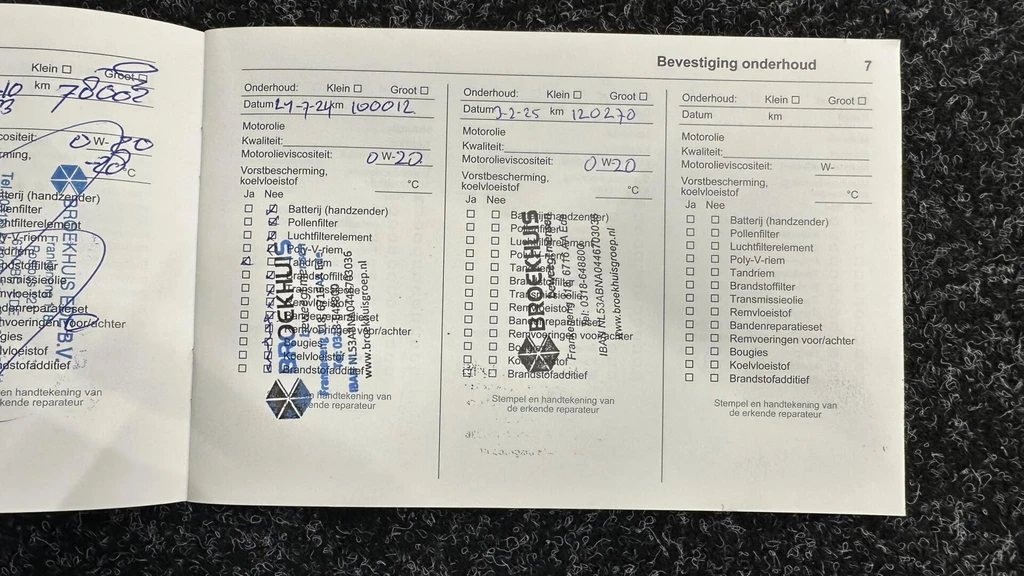 Klein ☐ Groot ☐
km 78003
0 W-20
°C
Batterij (handzender)
Pollenfilter
Luchtfilterelement
Poly-V-riem
BROEKHUIS EDE B.V.
Remvoeringen voor/achter
Brandstofadditief
en handtekening van
erkende reparateur
Bevestiging onderhoud 7
Onderhoud: Klein ☐ Groot ☐
Datum 24-7-24 km 100012
Motorolie
Kwaliteit:
Motorolieviscositeit: 0 W-20
Vorstbescherming,
koelvloeistof °C
Ja Nee
Batterij (handzender)
Pollenfilter
Luchtfilterelement
Poly-V-riem
Tandriem
Brandstoffilter
Remvoeringen voor/achter
Bougies
Koelvloeistof
Brandstofadditief
BROEKHUIS
IBAN NL53ABNA0446703036
www.broekhuisgroep.nl
en handtekening van
de erkende reparateur
Onderhoud: Klein ☐ Groot ☐
Datum 3-2-25 km 120270
Motorolie
Kwaliteit:
Motorolieviscositeit: 0 W-20
Vorstbescherming,
koelvloeistof °C
Ja Nee
Batterij (handzender)
Remvloeistof
Bandenreparatieset
Remvoeringen voor/achter
Koelvloeistof
Brandstofadditief
BROEKHUIS
Tel: 0318-648800
IBAN NL53ABNA0446703036
www.broekhuisgroep.nl
Stempel en handtekening van
de erkende reparateur
Onderhoud: Klein ☐ Groot ☐
Datum km
Motorolie
Kwaliteit:
Motorolieviscositeit: W-
Vorstbescherming,
koelvloeistof °C
Ja Nee
☐ ☐ Batterij (handzender)
☐ ☐ Pollenfilter
☐ ☐ Luchtfilterelement
☐ ☐ Poly-V-riem
☐ ☐ Tandriem
☐ ☐ Brandstoffilter
☐ ☐ Transmissieolie
☐ ☐ Remvloeistof
☐ ☐ Bandenreparatieset
☐ ☐ Remvoeringen voor/achter
☐ ☐ Bougies
☐ ☐ Koelvloeistof
☐ ☐ Brandstofadditief
Stempel en handtekening van
de erkende reparateur